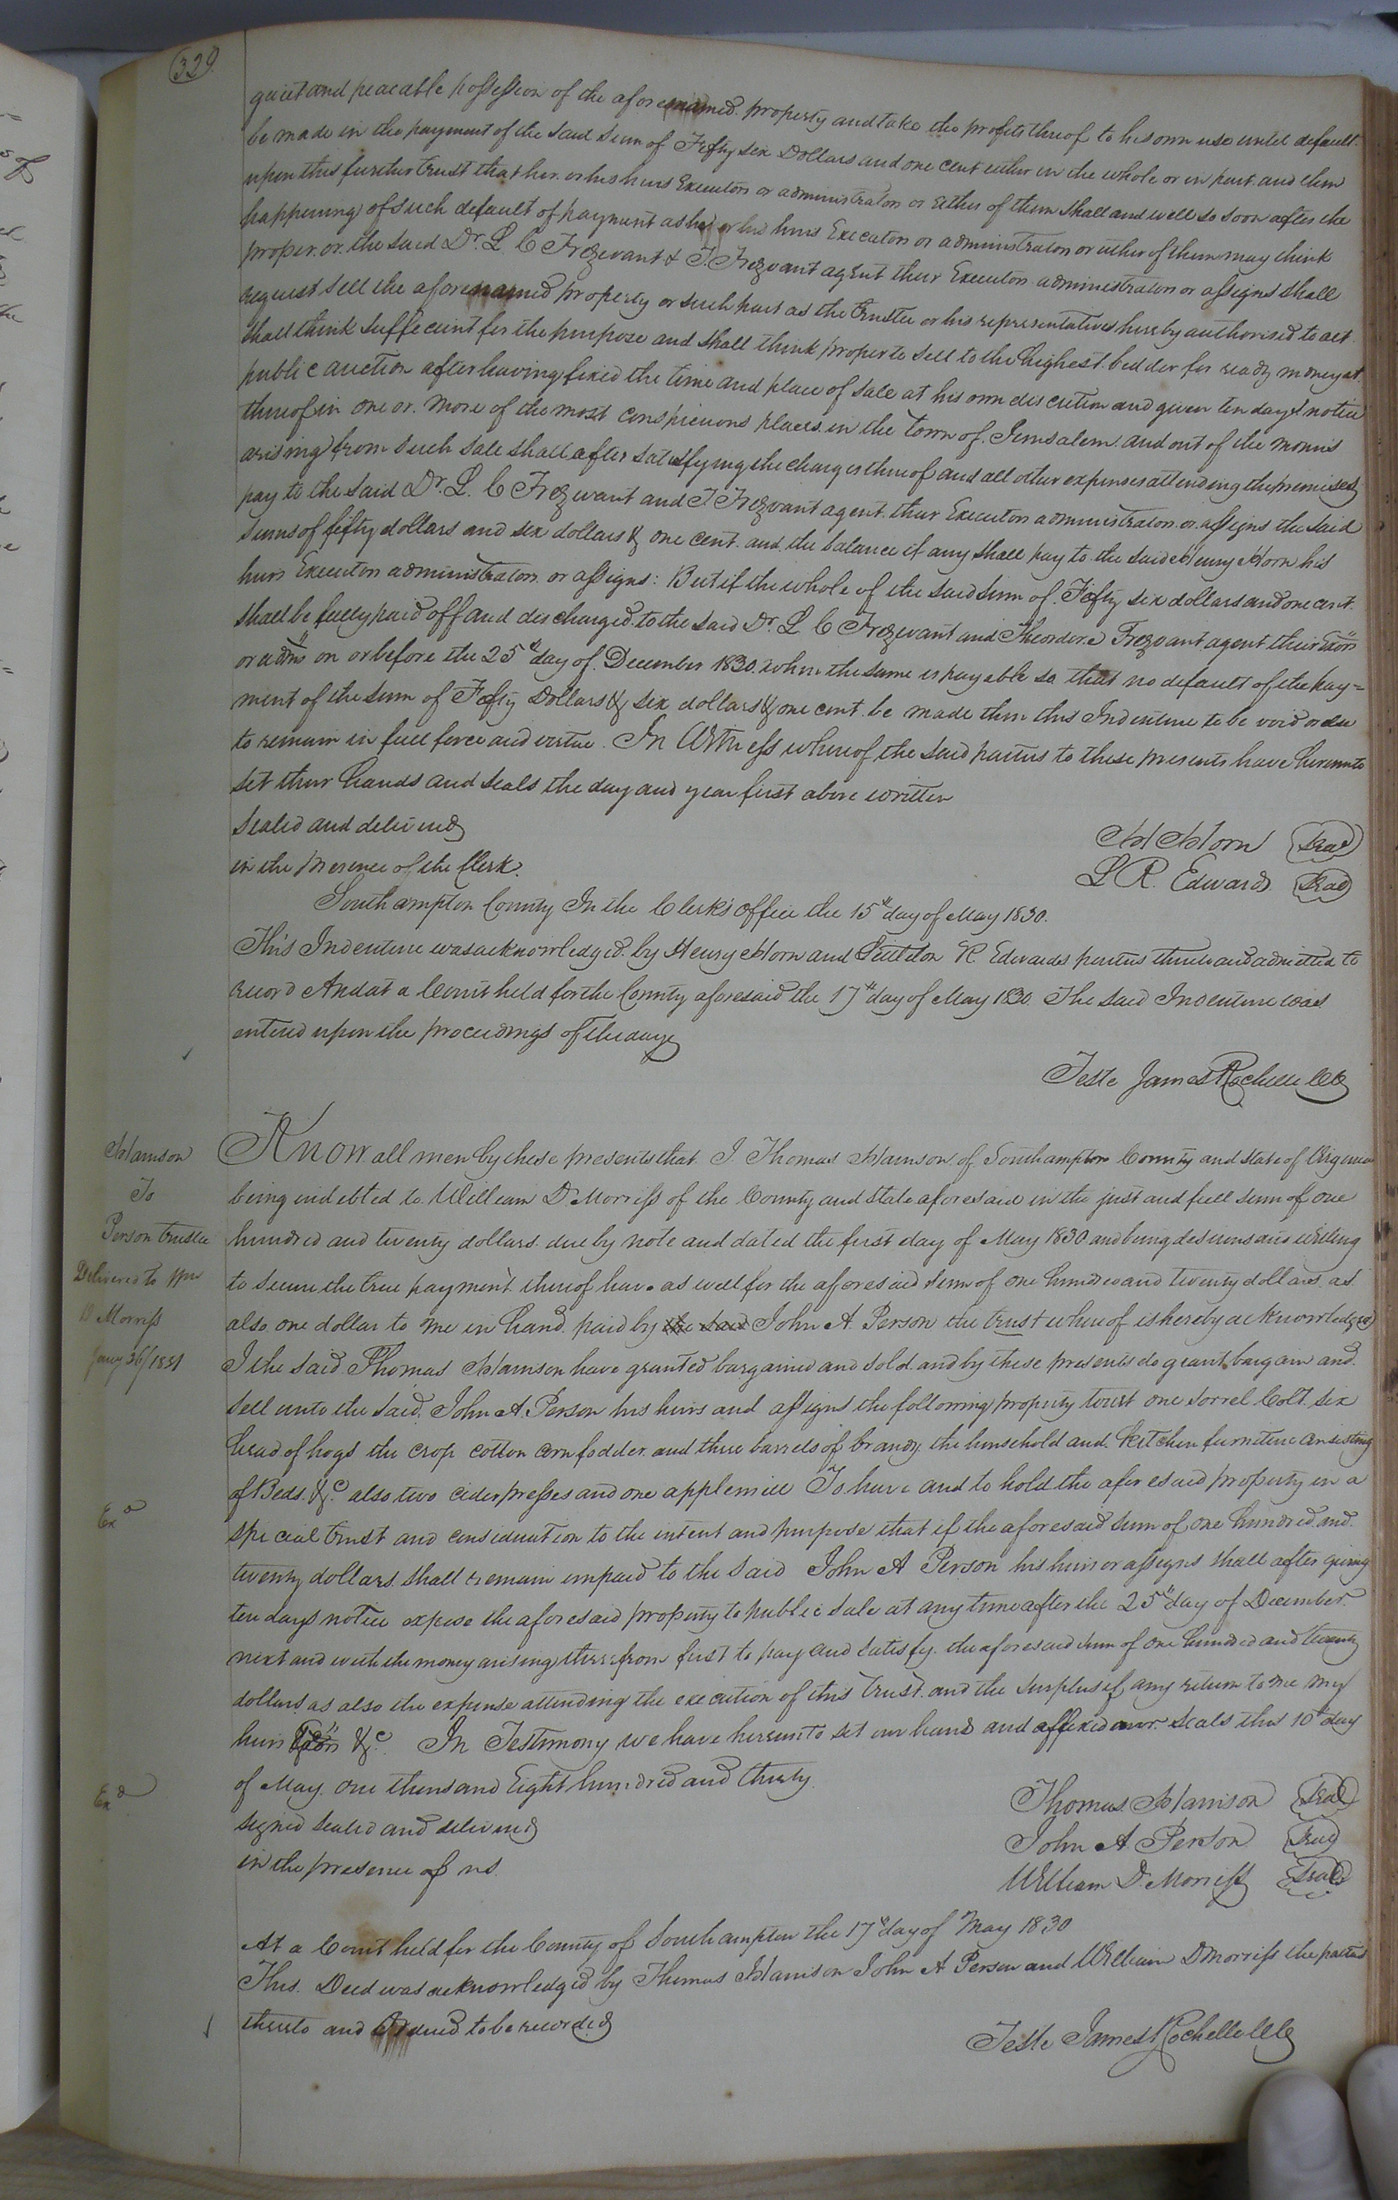 329
quiet and peaceable possession of the aforenamed property and take the profits thereof to his own use until default
be made in the payment of the said sum of Fifty six Dollars and one cent either in the whole or in part and then
upon this further trust that her or his heirs Executors or administrators or either of them shall and will so soon after the
happening of such default of payment as he or his heirs Executors or administrators or either of them may think
proper or the said Dr. L C Trezvant & T. Trezvant agent their Executors administrators or assigns shall
request sell the aforenamed property or such part as the trustee or his representatives hereby authorised to act
shall think sufficient for the purpose and shall think proper to sell to the highest bidder for ready money at
public auction after having fixed the time and place of sale at his own discretion and given ten days notice
thereof in one or more of the most conspicuous places in the town of Jerusalem and out of the monies
arising from such sale shall after satisfying the charges thereof and all other expenses attending the premises
pay to the said Dr. L. C Trezvant and T. Trezvant agent their Executors administrators or assigns the said
sums of fifty dollars and six dollars & one cent and the balance if any shall pay to the said Henry Horn his
heirs Executors administrators or assigns: But if the whole of the said sum of Fifty six dollars and one cent
shall be fully paid off and discharged to the said Dr. L C Trezvant and Theordore Trezvant agent their Exors
or adms on or before the 25th day of December 1830 when the same is payable so that no default of the pay=
ment of the sum of Fifty Dollars & six dollars & one cent be made then this Indenture to be void or else
to remain in full force and virtue. In Witness whereof the said parties to these presents have hereunto
set their hands and seals the day and year first above written
Sealed and delivered
in the presence of the Clerk.
H Horn Seal
L R. Edwards Seal
Southampton County In the Clerk's office the 15th day of May 1830.
This Indenture was acknowledged by Henry Horn and Littleton R. Edwards parties thereto and admitted to
record And at a Court held for the County aforesaid the 17th day of May 1830 The said Indenture was
entered upon the proceedings of the day
Teste James Rochelle Clk
Harrison
To
Person trustee
Delivered to Wm
D Morriss
Jany 26/1831
Know all men by these presents that I Thomas Harrison of Southampton County and state of Virginia
being indebted to William D Morriss of the County and state aforesaid in the just and full sum of one
hundred and twenty dollars due by note and dated the first day of May 1830 and being desirous and willing
to secure the true payment thereof have as well for the aforesaid sum of one hundred and twenty dollars as
also one dollar to me in hand paid by the said John A. Person the trust whereof is hereby acknowledged
I the said Thomas Harrison have granted bargained and sold and by these presents do grant bargain and
sell unto the said John A. Person his heirs and assigns the following property towit one sorrel Colt six
head of hogs the crop cotton corn fodder and three barrels of brandy the household and kitchen furniture consisting
of Beds &c also two cider presses and one applemill To have and to hold the aforesaid property in a
Exd
special trust and consideration to the intent and purpose that if the aforesaid sum of one hundred and
twenty dollars shall remain unpaid to the said John A Person his heirs or assigns shall after giving
ten days notice expose the aforesaid property to public sale at any time after the 25th day of December
next and with the money arising therefrom first to pay and satisfy the aforesaid sum of one hundred and twenty
dollars as also the expense attending the execution of this trust and the surplus if any return to me my
heirs Exors &c. In Testimony we have hereunto set our hands and affixed our seals this 10th day
of May one thousand Eight hundred and thirty
Exd
signed sealed and delivered
in the presence of us
Thomas Harrison Seal
John A. Person Seal
William D. Morriss Seal
At a Court held for the County of Southampton the 17th day of May 1830
This Deed was acknowledged by Thomas Harrison John A Person and William D Morriss the parties
thereto and Ordered to be recorded
Teste James Rochelle Clk